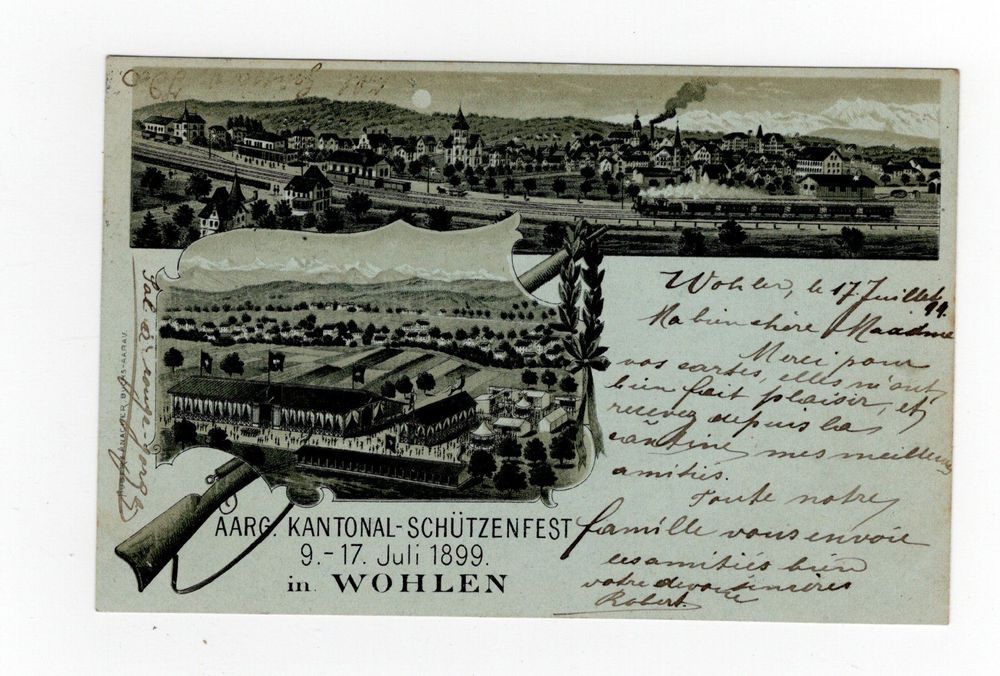 AARG. KANTONAL-SCHÜTZENFEST
9.-17. Juli 1899.
in WOHLEN
Wohlen, le 17 Juillet 99.
Ma bien chère Maadme
Merci pour
vos cartes, elles m'ont
bien fait plaisir, et
recevez depuis la
cantine mes meilleures
amitiés.
Toute notre
famille vous envoie
ces amitiés bien
votre
Robert.